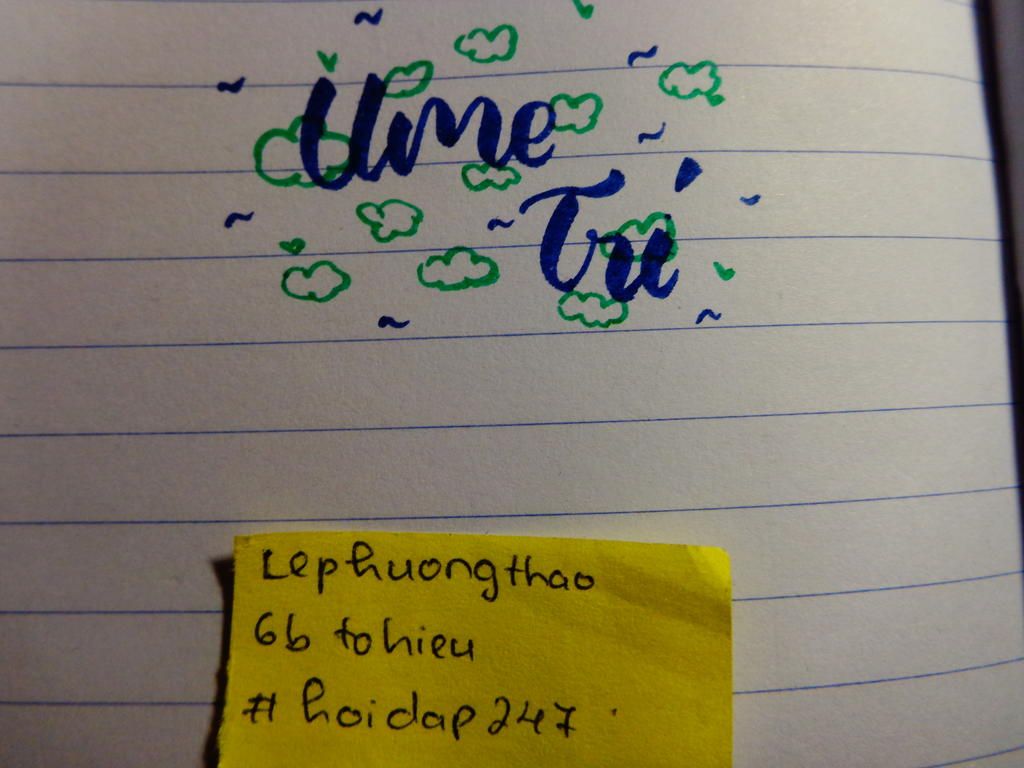 Ume
Tú
Lephuongthao
6b tohieu
# hoidap247